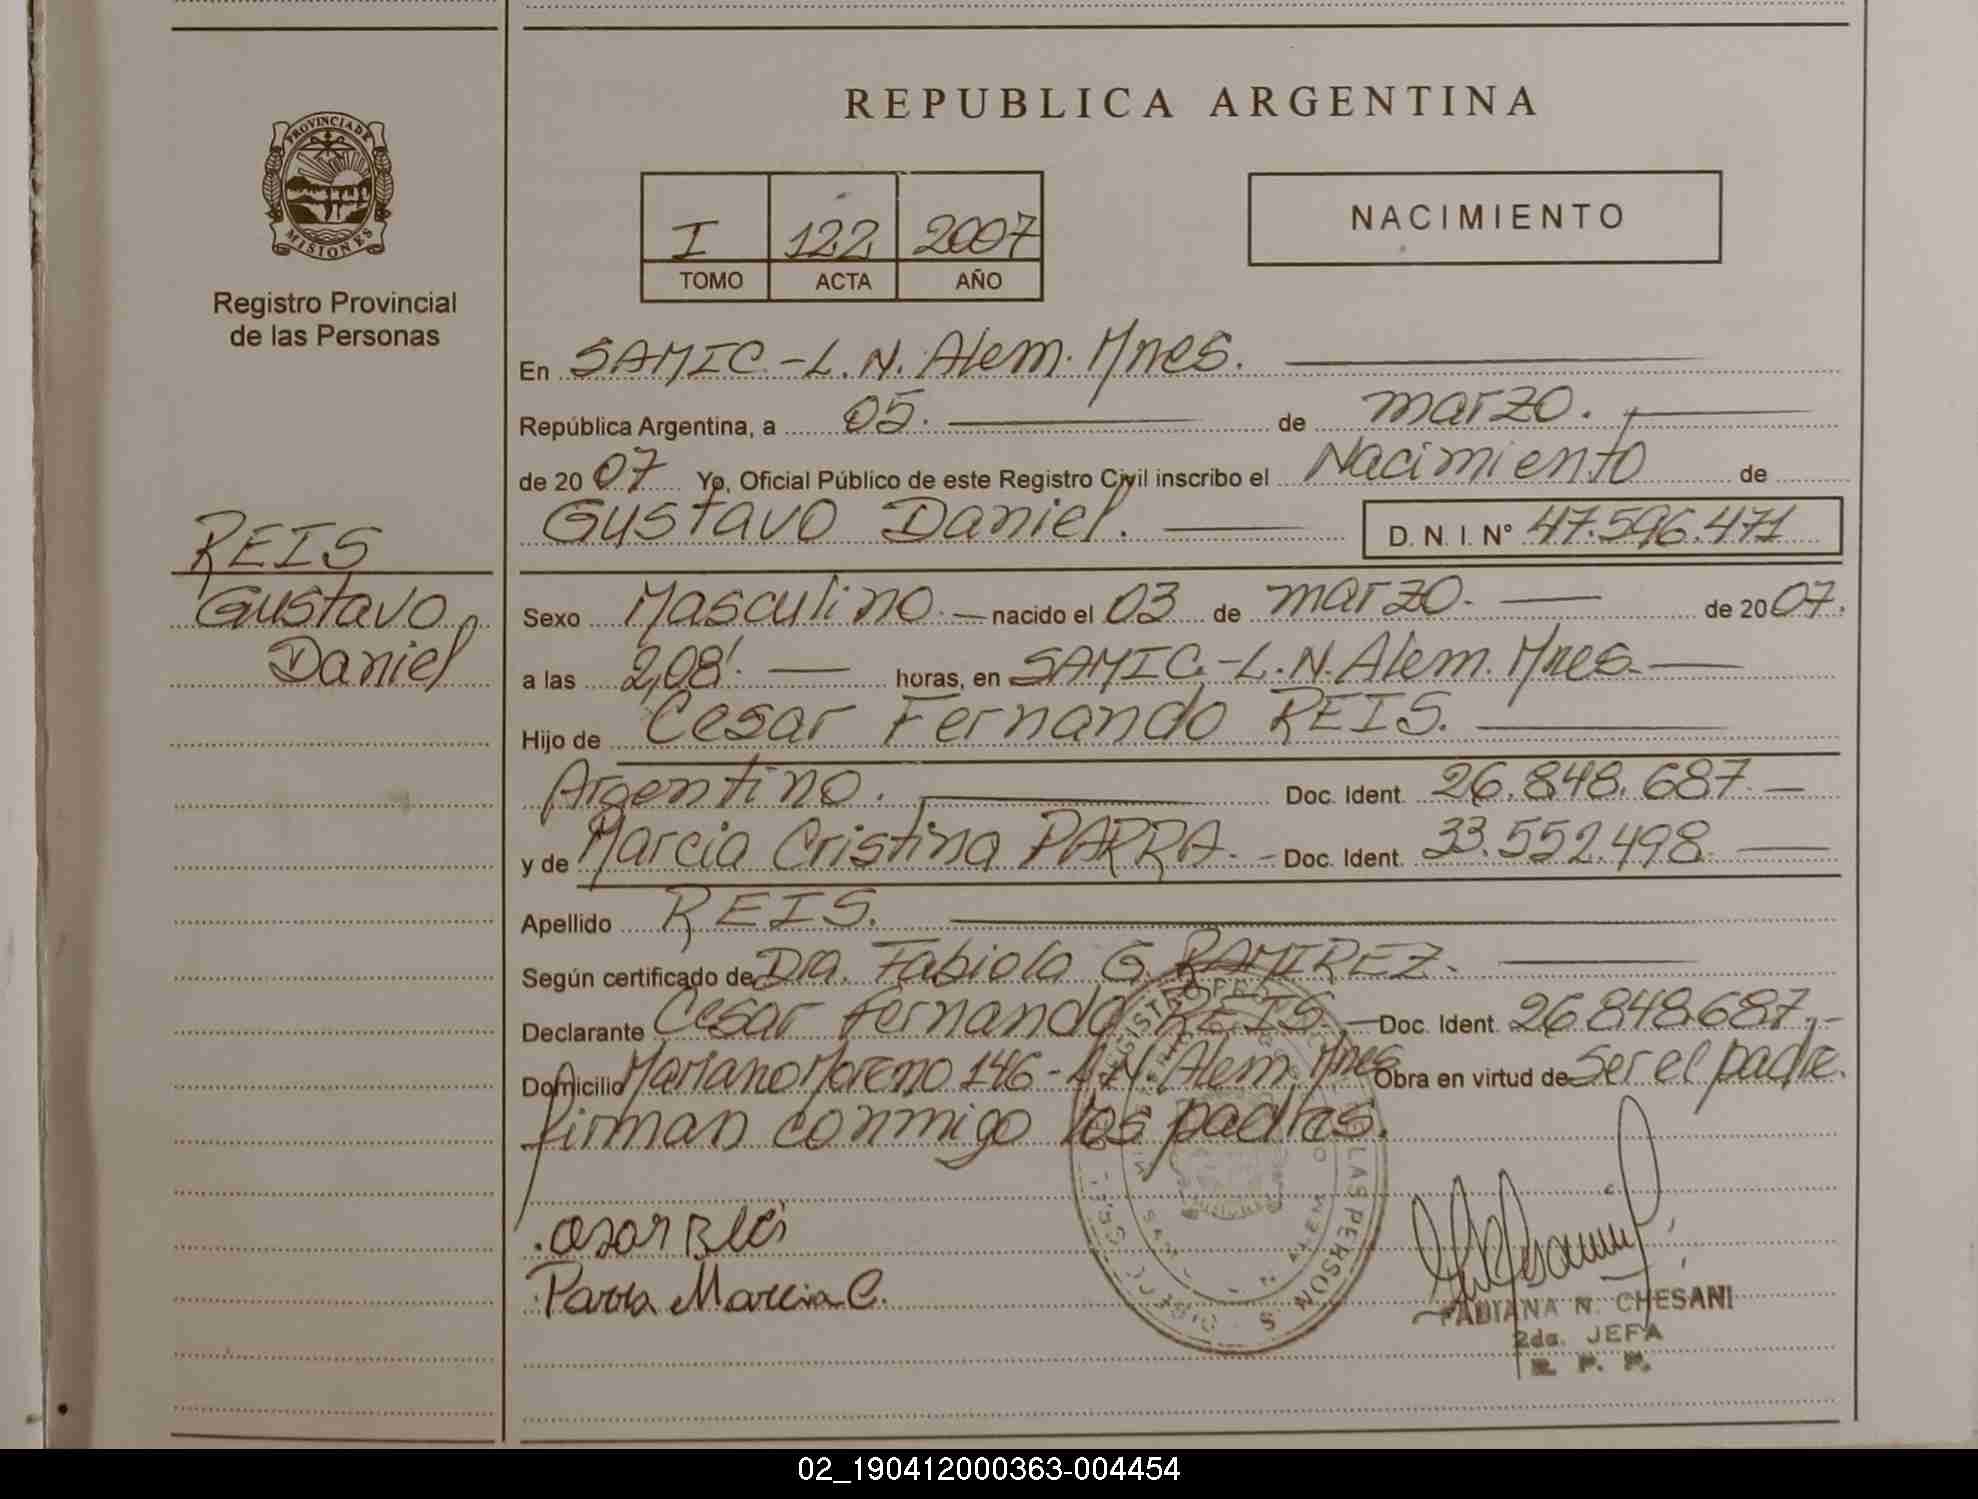 PROVINCIA DE
MISIONES
Registro Provincial
de las Personas
REIS
Gustavo
Daniel
REPUBLICA ARGENTINA
I 122 2007
TOMO ACTA AÑO
NACIMIENTO
En SAMIC.-L.N. Alem. Mnes.
República Argentina, a 05. de marzo.
de 2007 Yo, Oficial Público de este Registro Civil inscribo el Nacimiento de
Gustavo Daniel. D. N. I. Nº 47.596.471
Sexo Masculino. nacido el 03 de marzo. de 2007.
a las 2,08'. horas, en SAMIC.-L.N. Alem. Mnes.
Hijo de Cesar Fernando REIS.
Argentino. Doc. Ident. 26.848.687.
y de Marcia Cristina PARRA. Doc. Ident. 33.552.498.
Apellido REIS.
Según certificado de Dra. Fabiola G. RAMIREZ.
Declarante Cesar Fernando REIS. Doc. Ident. 26.848.687.
Domicilio Mariano Moreno 146-L.N. Alem. Mnes Obra en virtud de Ser el padre.
firman conmigo los padres.
Parra Marcia C.
LAS PERSONAS
FABIANA N. CHESANI
2da. JEFA
R. P. P.
02_190412000363-004454